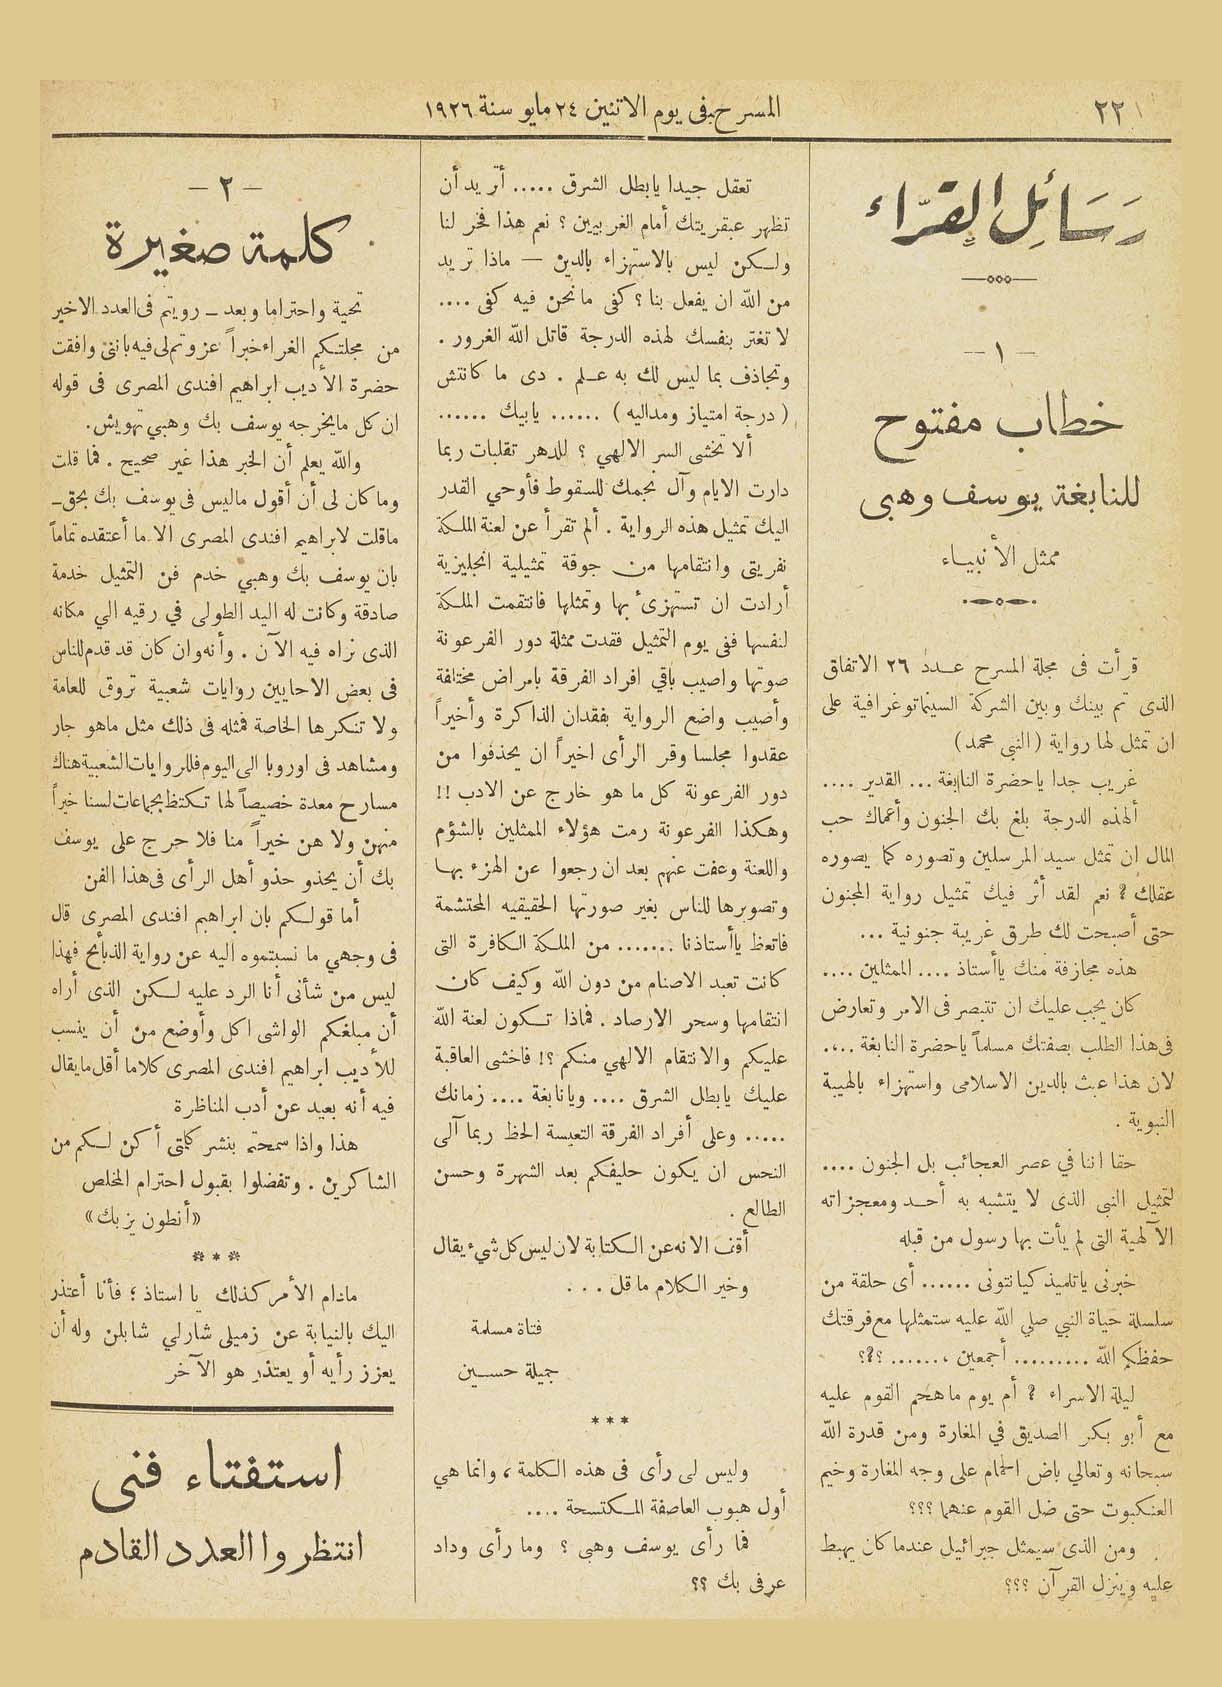 ٢٢
المسرح في يوم الاثنين ٢٤ مايو سنة ١٩٢٦
رَسَائِل القُرّاء
— ١ —
خطاب مفتوح
للنابغة يوسف وهبى
ممثل الأنبياء
قرأت فى مجلة المسرح عدد ٢٦ الاتفاق
الذى تم بينك وبين الشركة السينماتوغرافية على
ان تمثل لها رواية (النبى محمد)
غريب جدا ياحضرة النابغة ... القدير ....
ألهذه الدرجة بلغ بك الجنون وأعماك حب
المال ان تمثل سيد المرسلين وتصوره كما يصوره
عقلك ؟ نعم لقد أثر فيك تمثيل رواية المجنون
حتى أصبحت لك طرق غريبة جنونية ...
هذه مجازفة منك ياأستاذ .... الممثلين ....
كان يجب عليك ان تتبصر فى الامر وتعارض
فى هذا الطلب بصفتك مسلماً ياحضرة النابغة ....
لان هذا عبث بالدين الاسلامى واستهزاء بالهيبة
النبوية .
حقا اننا في عصر العجائب بل الجنون ....
لتمثيل النبى الذى لا يتشبه به أحد ومعجزاته
الآلهية التى لم يأت بها رسول من قبله
خبرنى ياتلميذ كيانتونى ...... أى حلقة من
سلسلة حياة النبي صلي الله عليه ستمثلها مع فرقتك
حفظكم الله ......... أجمعين ....... ؟؟؟
ليلة الاسراء ؟ أم يوم ماهجم القوم عليه
مع أبو بكر الصديق في المغارة ومن قدرة الله
سبحانه وتعالي باض الحمام على وجه المغارة وخيم
العنكبوت حتى ضل القوم عنهما ؟؟؟
ومن الذى سيمثل جبرائيل عندما كان يهبط
عليه وينزل القرآن ؟؟؟
تعقل جيدا يابطل الشرق ..... أتريد أن
تظهر عبقريتك أمام الغربيين ؟ نعم هذا فخر لنا
ولكن ليس بالاستهزاء بالدين — ماذا تريد
من الله ان يفعل بنا ؟ كفى مانحن فيه كفى ....
لا تغتر بنفسك لهذه الدرجة قاتل الله الغرور .
وتجاذف بما ليس لك به علم . دى ما كانتش
( درجة امتياز ومداليه ) ...... يابيك ......
ألا تخشى السر الالهي ؟ للدهر تقلبات ربما
دارت الايام وآل نجمك للسقوط فأوحي القدر
اليك تمثيل هذه الرواية . ألم تقرأ عن لعنة الملكة
نفريتى وانتقامها من جوقة تمثيلية انجليزية
أرادت ان تستهزئ بها وتمثلها فانتقمت الملكة
لنفسها ففى يوم التمثيل فقدت ممثلة دور الفرعونة
صوتها واصيب باقي افراد الفرقة بامراض مختلفة
وأصيب واضع الرواية بفقدان الذاكرة وأخيراً
عقدوا مجلسا وقر الرأى اخيراً ان يحذفوا من
دور الفرعونة كل ما هو خارج عن الادب !!
وهكذا الفرعونة رمت هؤلاء الممثلين بالشؤم
واللعنة وعفت عنهم بعد ان رجعوا عن الهزء بها
وتصويرها للناس بغير صورتها الحقيقيه المحتشمة
فاتعظ ياأستاذنا ....... من الملكة الكافرة التى
كانت تعبد الاصنام من دون الله وكيف كان
انتقامها وسحر الارصاد . فماذا تكون لعنة الله
عليكم والانتقام الالهي منكم ؟! فاخشى العاقبة
عليك يابطل الشرق .... ويانابغة .... زمانك
..... وعلى أفراد الفرقة التعيسة الحظ ربما آلى
النحس ان يكون حليفكم بعد الشهرة وحسن
الطالع .
أقف الانه عن الكتابة لان ليس كل شيء يقال
وخير الكلام ما قل ...
فتاة مسلمة
جميلة حسين
* * *
وليس لى رأى فى هذه الكلمة ، وانما هي
أول هبوب العاصفة المكتسحة ....
فما رأى يوسف وهبى ؟ وما رأى وداد
عرفى بك ؟؟
— ٢ —
كلمة صغيرة
تحية واحتراما وبعد — رويتم فى العدد الاخير
من مجلتكم الغراء خبراً عزوتم لى فيه باننى وافقت
حضرة الأديب ابراهيم افندى المصرى فى قوله
ان كل مايخرجه يوسف بك وهبي تهويش.
والله يعلم أن الخبر هذا غير صحيح . فما قلت
وما كان لى أن أقول ماليس فى يوسف بك بحق —
ماقلت لابراهيم افندى المصرى الا ما أعتقده تماماً
بان يوسف بك وهبي خدم فن التمثيل خدمة
صادقة وكانت له اليد الطولى في رقيه الي مكانه
الذى نراه فيه الآن . وأنه وان كان قد قدم للناس
فى بعض الاحايين روايات شعبية تروق للعامة
ولا تنكرها الخاصة فمثله فى ذلك مثل ماهو جار
ومشاهد فى اوروبا الى اليوم فللروايات الشعبية هناك
مسارح معدة خصيصاً لها تكتظ بجماعات لسنا خيراً
منهن ولا هن خيراً منا فلا حرج على يوسف
بك أن يحذو حذو أهل الرأى فى هذا الفن
أما قولكم بان ابراهيم افندى المصرى قال
فى وجهي ما نسبتموه اليه عن رواية الذبائح فهذا
ليس من شأنى أنا الرد عليه لكن الذى أراه
أن مبلغكم الواشى اكل وأوضع من أن ينسب
للأديب ابراهيم افندى المصرى كلاما أقل مايقال
فيه أنه بعيد عن أدب المناظرة
هذا واذا سمحتم بنشر كلمتى أكن لكم من
الشاكرين . وتفضلوا بقبول احترام المخلص
«أنطون يزبك»
* * *
مادام الأمر كذلك يا استاذ ؛ فأنا أعتذر
اليك بالنيابة عن زميلى شارلي شابلن وله أن
يعزز رأيه أو يعتذر هو الآخر
استفتاء فنى
انتظروا العدد القادم